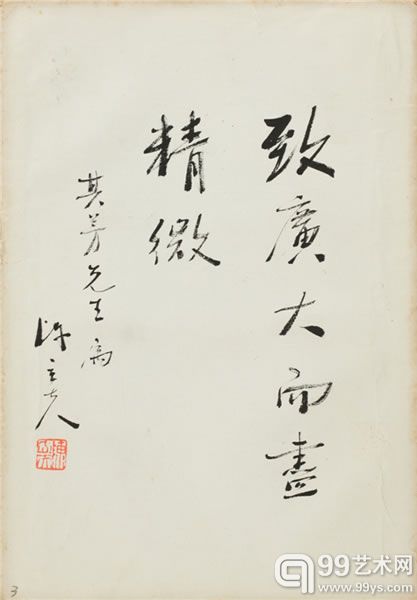 致廣大而盡
精微
其芳先生属
陳立夫
3
99艺术网
www.99ys.com